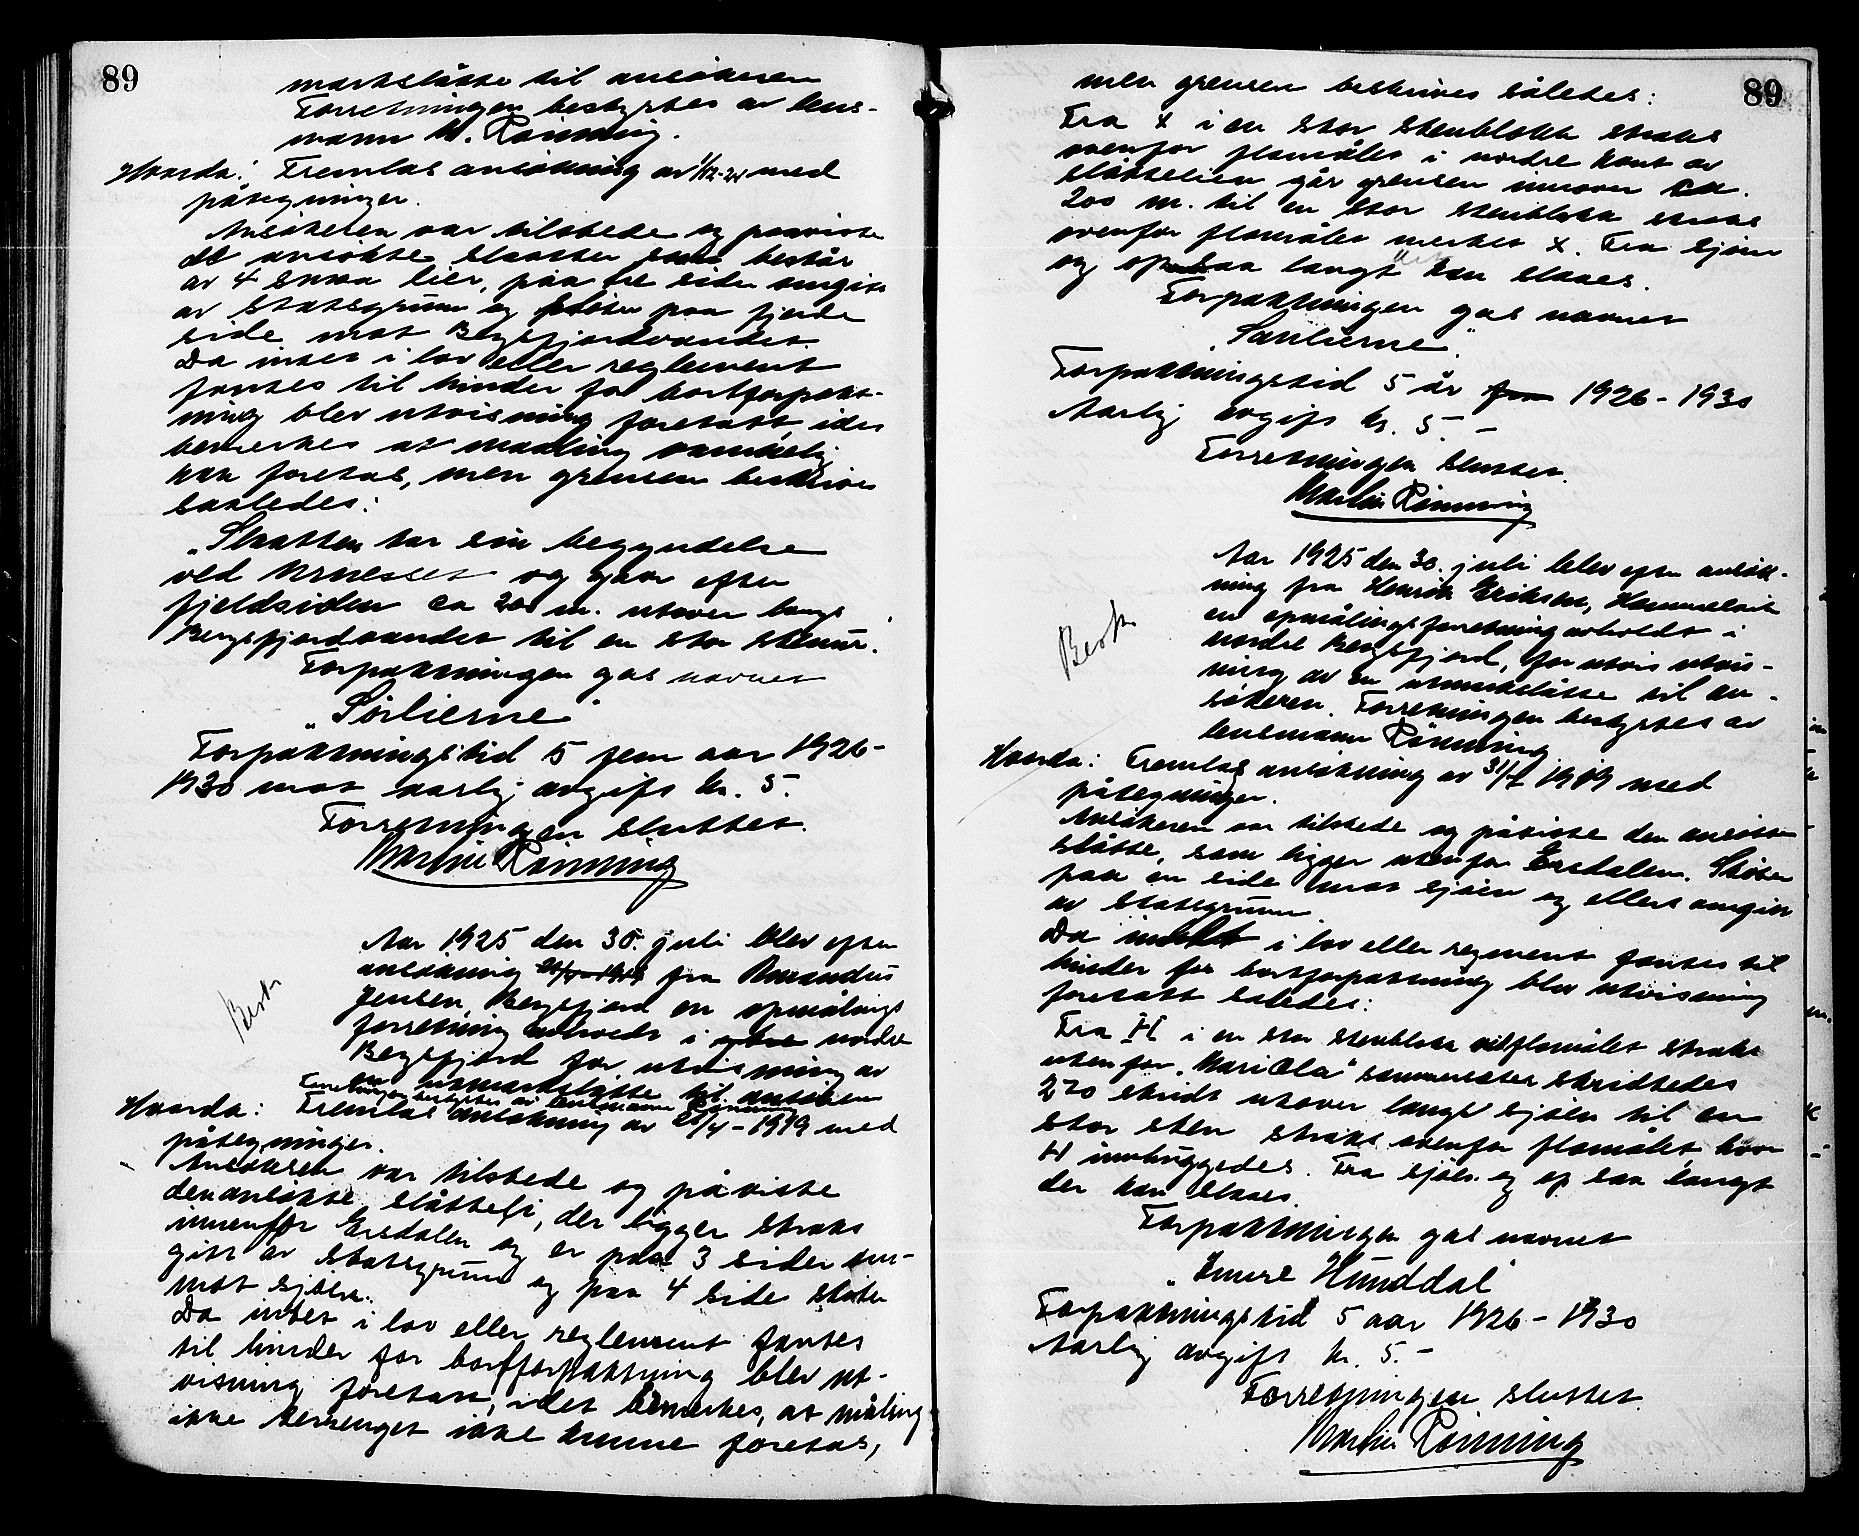 89
markslåtte til ansökeren
Forretningen bestyrtes av lens-
mann M. Rönning.
Hvorda: Fremlas ansökning av 1/12-24 med
påtegninger.
Ansökeren var tilstede og paaviste
de ansökte slaatter som består
av 4 smaa lier, paa tre sider omgit
av statsgrunn og støter paa fjerde
side mot Bergsfjordvandet.
Da intet i lov eller reglement
fantes til hinder for bortforpakt-
ning blev utvisning foretatt, idet
bemerkes at maaling vanskelig
kan foretas, men grensen beskrives
saaledes:
"Slaatten tar sin begyndelse
ved og gaar efter
fjeldsiden ca 200 m. utover langs
Bergsfjordvandet til en stor stenur.
Forpaktningen gas navnet
"Sörlierne"
Forpaktningstid 5 fem aar 1926-
1930 mot aarlig avgift kr. 5.
Forretningen sluttet.
Martin Rönning
Bertr
Aar 1925 den 30. juli blev efter
ansökning fra Amandus
Jensen, Bergsfjord en opmålings
forretning avholdt i ytre nordre
Bergsfjord for utvisning av
en utmarkslåtte til ansökeren
Forretningen bestyrtes av lensmann Rönning
Hvorda: Fremlas ansökning av 28/4-1919 med
påtegninger.
Ansökeren var tilstede og påviste
den ansökte slåtteli, der ligger straks
innenfor Ersdalen og er paa 3 sider om-
gitt av statsgrunn og paa 4 side støter
mot sjöen.
Da intet i lov eller reglement fantes
til hinder for bortforpaktning blev ut-
visning foretatt, idet bemerkes, at måling
ikke terrenget ikke kunne foretas,
89
men grensen beskrives således:
Fra x i en stor stenblokk straks
ovenfor flomålet i nordre kant av
slåttelien går grensen innover ca.
200 m. til en stor stenblokk straks
ovenfor flomålet merket x. Fra sjöen
og op saa langt det kan slaaes.
Forpaktningen gas navnet
"Sanlierne".
Forpaktningstid 5 år fra 1926-1930
Aarlig avgift kr. 5.-
Forretningen sluttet.
Martin Rönning
Bertr
Aar 1925 den 30. juli blev efter ansök-
ning fra Henrik Eriksen, Hammelvik
en opmålingsforretning avholdt i
nordre Bergsfjord, for utvis utvis-
ning av en utmarkslåtte til an-
sökeren. Forretningen bestyrtes av
lensmann Rönning
Hvorda: Fremlas ansökning av 31/7 1919 med
påtegninger.
Ansökeren var tilstede og påviste den ansökte
slåtte, som ligger utenfor Ersdalen. Støter
paa en side mot sjöen og ellers omgitt
av statsgrunn.
Da intet i lov eller regement fantes til
hinder for bortforpaktning blev utvisning
foretatt saledes:
Fra H i en stor stenblokk ved flomålet straks
utenfor "Mari Ola" sommersæter skridtedes
270 skridt utover langs sjöen til en
stor sten straks ovenfor flomålet, hvor
H innhuggedes. Fra sjöen og op saa langt
der kan slaaes.
Forpaktningen gas navnet
"Innre Hunddal"
Forpaktningstid 5 aar 1926-1930
Aarlig avgift kr. 5.-
Forretningen sluttet.
Martin Rönning